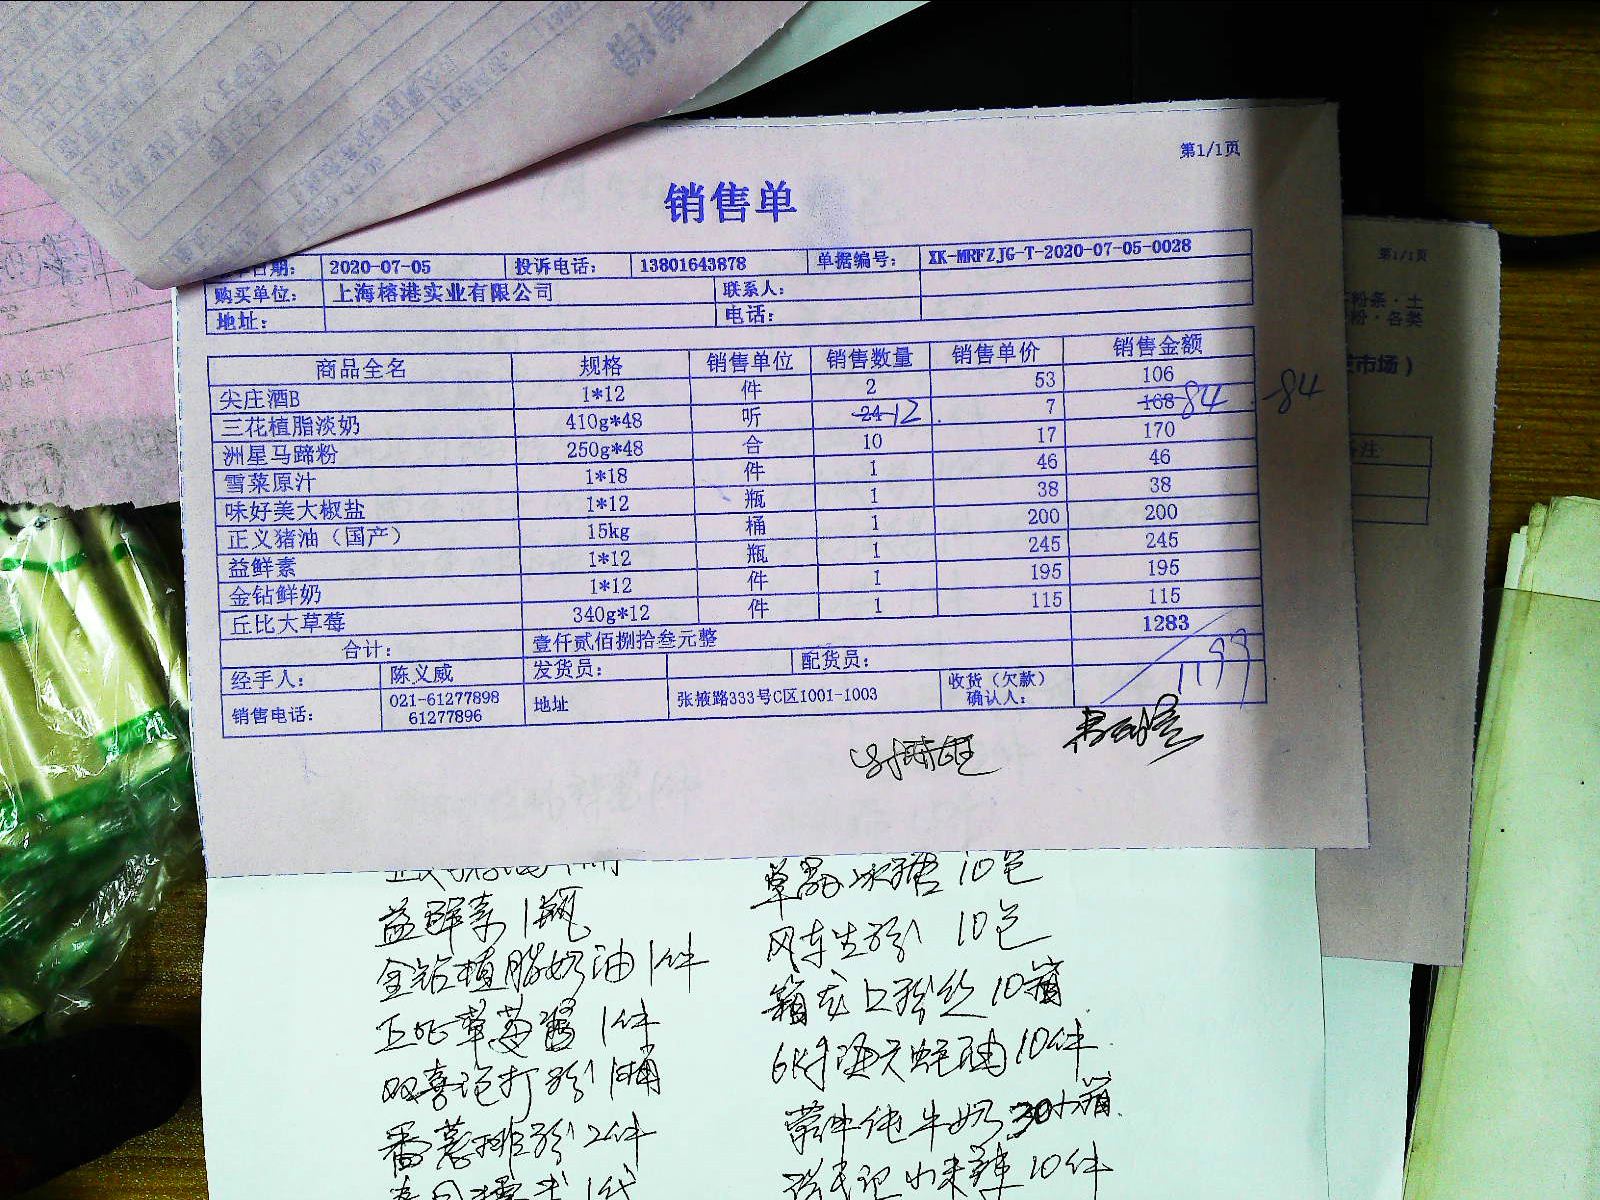 第1/1页
销售单
日期： 2020-07-05 投诉电话： 13801643878 单据编号： XK-MRFZJG-T-2020-07-05-0028
购买单位： 上海榕港实业有限公司 联系人：
地址： 电话：
商品全名 规格 销售单位 销售数量 销售单价 销售金额
尖庄酒B 1*12 件 2 53 106
三花植脂淡奶 410g*48 听 24 12 7 168 84 -84
洲星马蹄粉 250g*48 合 10 17 170
雪菜原汁 1*18 件 1 46 46
味好美大椒盐 1*12 瓶 1 38 38
正义猪油（国产） 15kg 桶 1 200 200
益鲜素 1*12 瓶 1 245 245
金钻鲜奶 1*12 件 1 195 195
丘比大草莓 340g*12 件 1 115 115
合计： 壹仟贰佰捌拾叁元整 1283
1199
经手人： 陈义威 发货员： 配货员：
销售电话： 021-61277898 61277896 地址 张掖路333号C区1001-1003 收货（欠款）确认人：
第1/1页
粉条·土
粉·各类
市场）
备注
益鲜素 1瓶
金钻植脂奶油 1件
丘比草莓酱 1件
双喜泡打粉 1桶
番薯排粉 2件
草菇冰糖 10包
风车生粉 10包
龙口粉丝 10箱
6kg海天蚝油 10件
蒙牛纯牛奶 30小箱
小米辣 10件